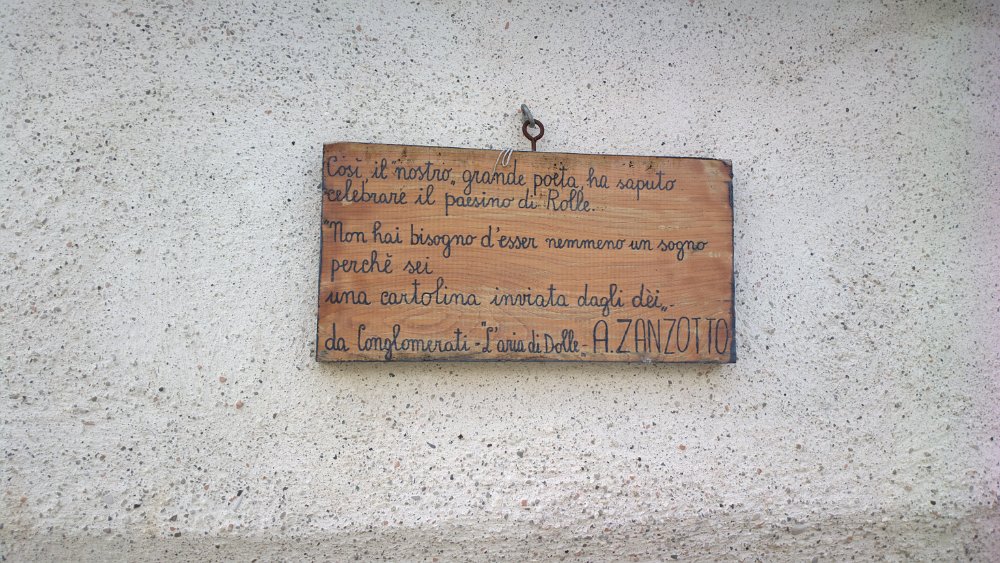 Così, il "nostro„ grande poeta, ha saputo
celebrare il paesino di Rolle.
"Non hai bisogno d'esser nemmeno un sogno
perchè sei
una cartolina inviata dagli dèi„.
da Conglomerati - "L'aria di Dolle - A. ZANZOTTO